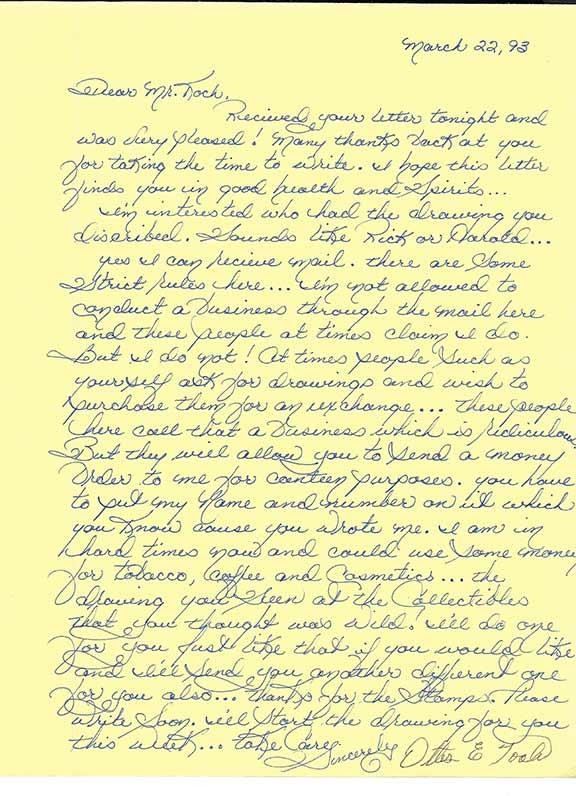 March 22, 93
Dear Mr. Koch,
Recieved your letter tonight and
was very pleased! Many thanks back at you
for taking the time to write. I hope this letter
finds you in good health and Spirits...
I'm interested who had the drawing you
discribed. Sounds like Rick or Harold...
yes I can recieve mail. there are some
Strict rules here... I'm not allowed to
conduct a business through the mail here
and these people at times claim I do.
But I do not! At times people such as
yourself ask for drawings and wish to
purchase them for an exchange... these people
here call that a business which is ridiculous.
But they will allow you to send a money
Order to me for canteen purposes. you have
to put my name and number on it which
you know cause you wrote me. I am in
hard times now and could use some money
for tobacco, coffee and Cosmetics... the
drawing you seen at the Collectibles
that you thought was wild! I'll do one
for you just like that if you would like
and I'll send you another different one
for you also... thanks for the Stamps. Please
write soon. I'll start the drawing for you
this week... take care,
Sincerely Ottis E Toole